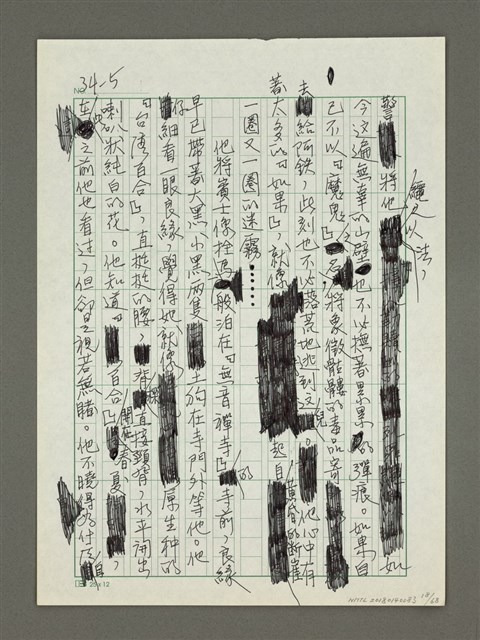 NO. 34-5
警將他繩之以法，如
今這遍無辜的山壁也不必撫著累累的彈痕。如果自
己不以「魔鬼」為名，將象徵骷髏的毒品寄
去給阿鉄，此刻也不必落荒地逃到文。他心中存
著太多的「如果」，就像起自黃昏的斷崖
一圈又一圈的迷霧……
他將賓士像拴馬般泊在「無音禪寺」的寺前，良緣
早已帶著大黑小黑兩隻土狗在寺門外等他。他
仔細看一眼良緣，覺得她就像一棵原生種的
「台灣百合」，直挺挺的腰，背直接頸脊，水平開出
喇叭狀純白的花。他知道「百合」開在春夏，
在此之前他也看過，但卻是視若無睹。他不曉得為什麼自
25x12
NMTL20180140283 18/68